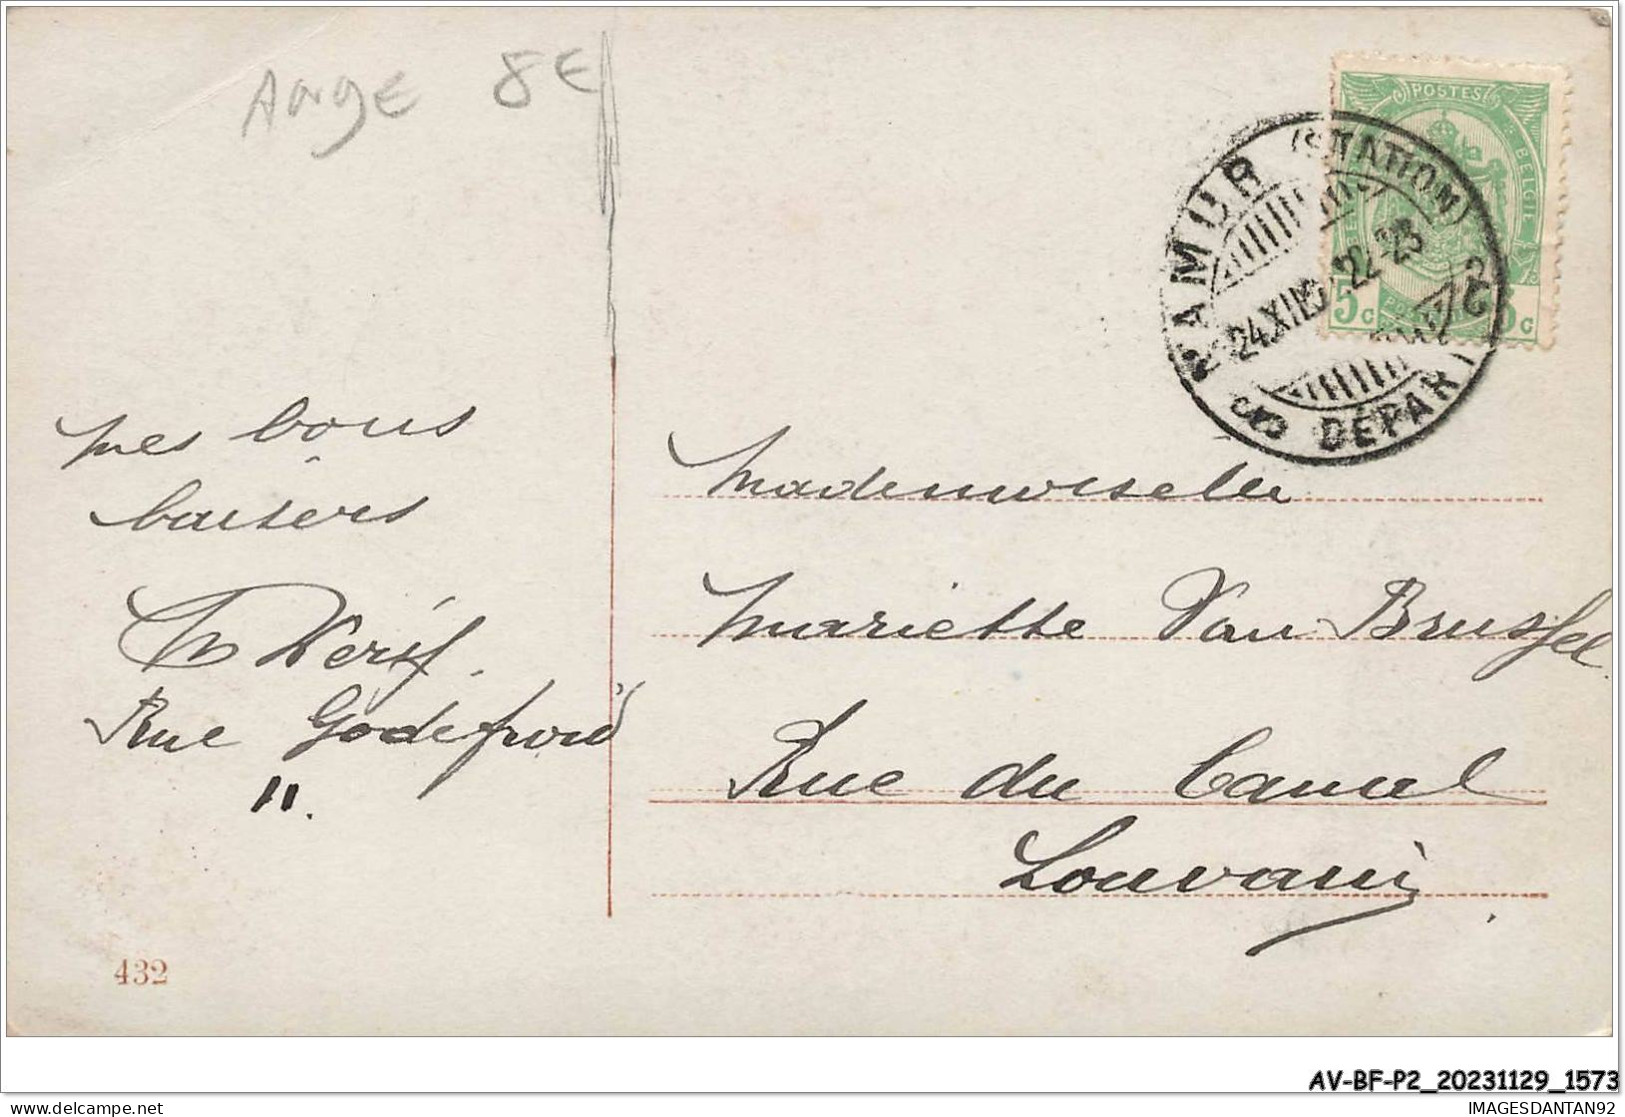 Ange 8€
POSTES
BELGIE
5c 5c
NAMUR (STATION)
24 XII 22-23
DÉPART
mes bons
baisers
Rue Godefroid
11.
Mademoiselle
Mariette Van Brussel
Rue du Canal
Louvain
432
AV-BF-P2_20231129_1573
delcampe.net
IMAGESDANTAN92